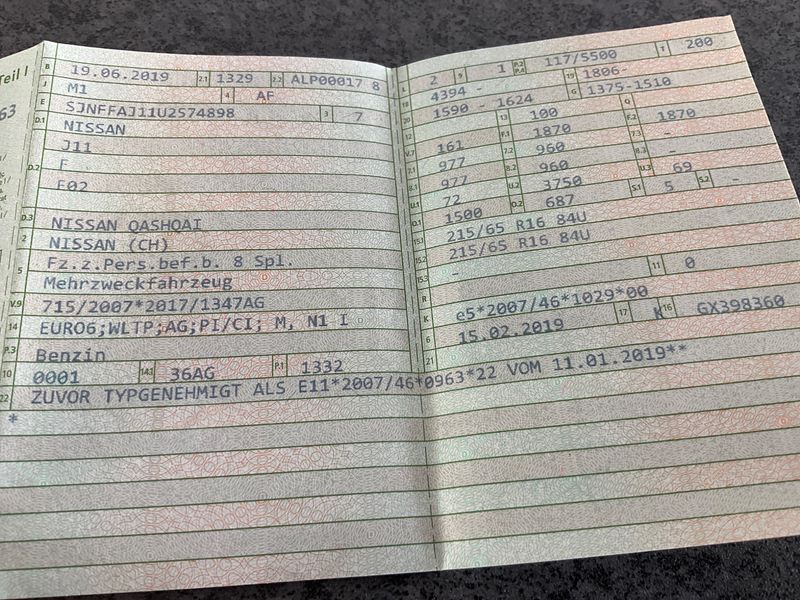 Teil I
63
B 19.06.2019 2.1 1329 2.2 ALP00017 8
J M1 4 AF
E SJNFFAJ11U2574898 3 7
D.1 NISSAN
J11
D.2 F
F02
D.3 NISSAN QASHQAI
2 NISSAN (CH)
5 Fz.z.Pers.bef.b. 8 Spl.
Mehrzweckfahrzeug
V.9 715/2007*2017/1347AG
14 EURO6;WLTP;AG;PI/CI; M, N1 I
P.3 Benzin
10 0001 14.1 36AG P.1 1332
22 ZUVOR TYPGENEHMIGT ALS E11*2007/46*0963*22 VOM 11.01.2019**
*
L 2 9 1 P.2 P.4 117/5500 T 200
18 4394 - 19 1806-
20 1590 - 1624 G 1375-1510
12 13 100 Q
V.7 161 F.1 1870 F.2 1870
7.1 977 7.2 960 7.3 -
8.1 977 8.2 960 8.3 -
U.1 72 U.2 3750 U.3 69
O.1 1500 O.2 687 S.1 5 S.2 -
15.1 215/65 R16 84U
15.2 215/65 R16 84U
15.3 -
R 11 0
K e5*2007/46*1029*00
6 15.02.2019 17 K 16 GX398360
21